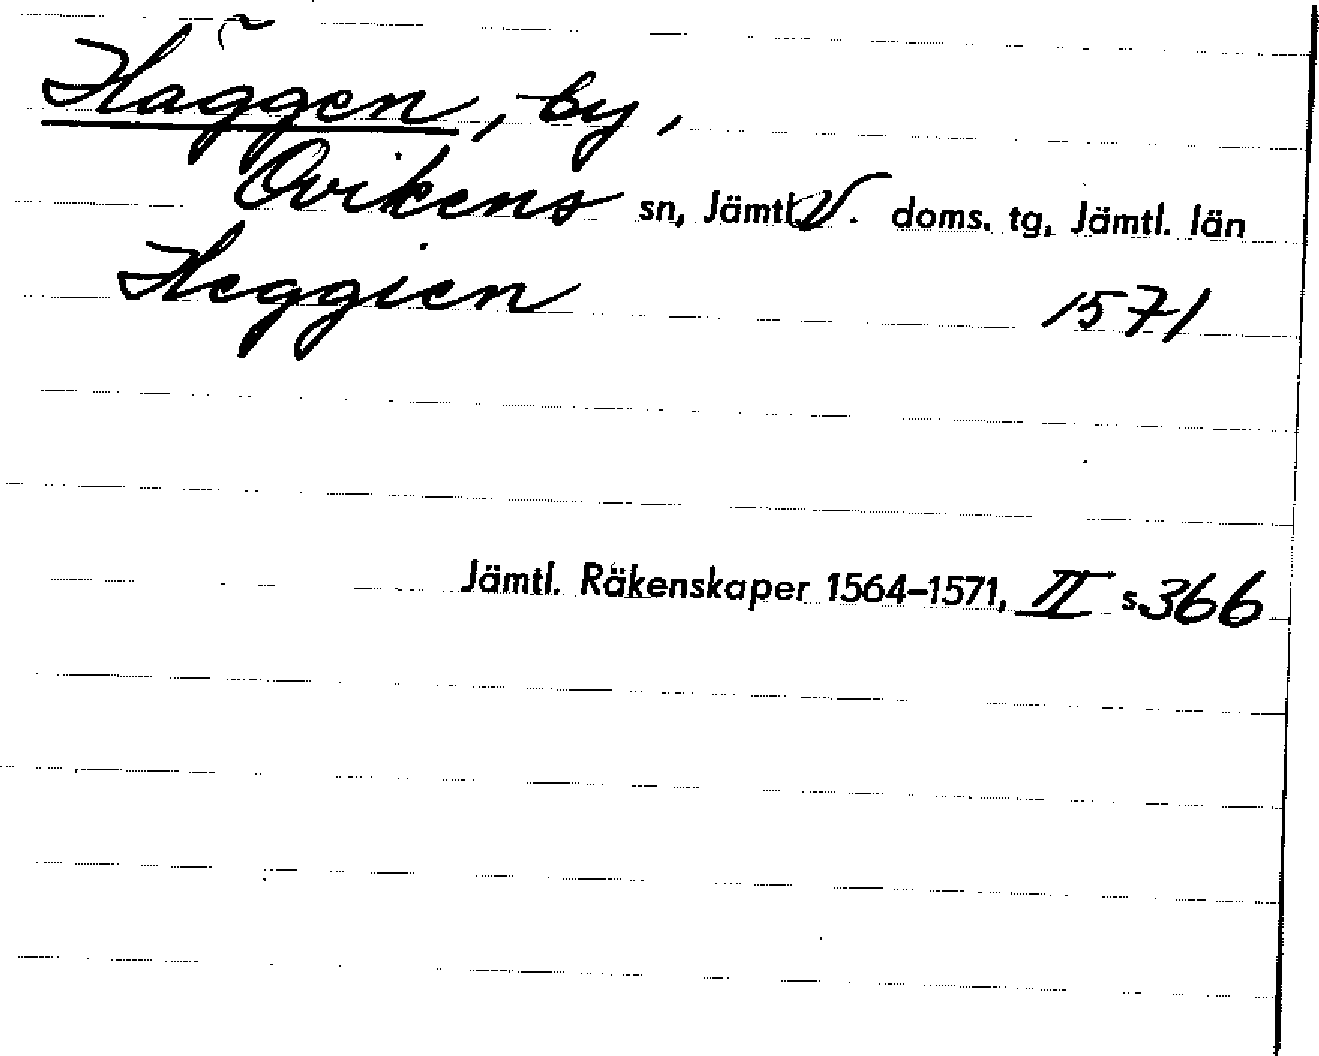 Häggen, by,
Ovikens sn, Jämtl. V. doms. tg, Jämtl. län
Heggien 1571
Jämtl. Räkenskaper 1564–1571, II s. 366